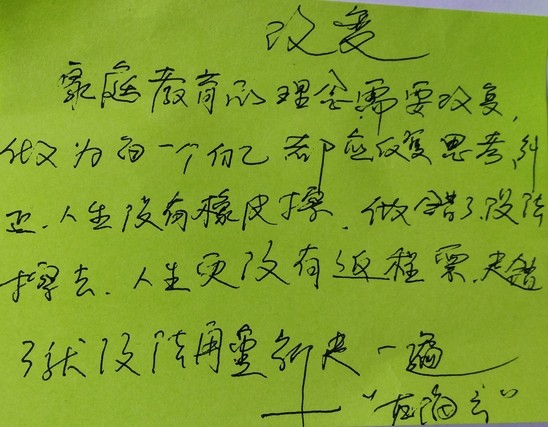 改变
家庭教育的理念需要改变,
做为每一个自己都应改变思考,纠
正.人生没有橡皮擦.做错了没法
擦去.人生更没有返程票.走错
了就没法再重新走一遍